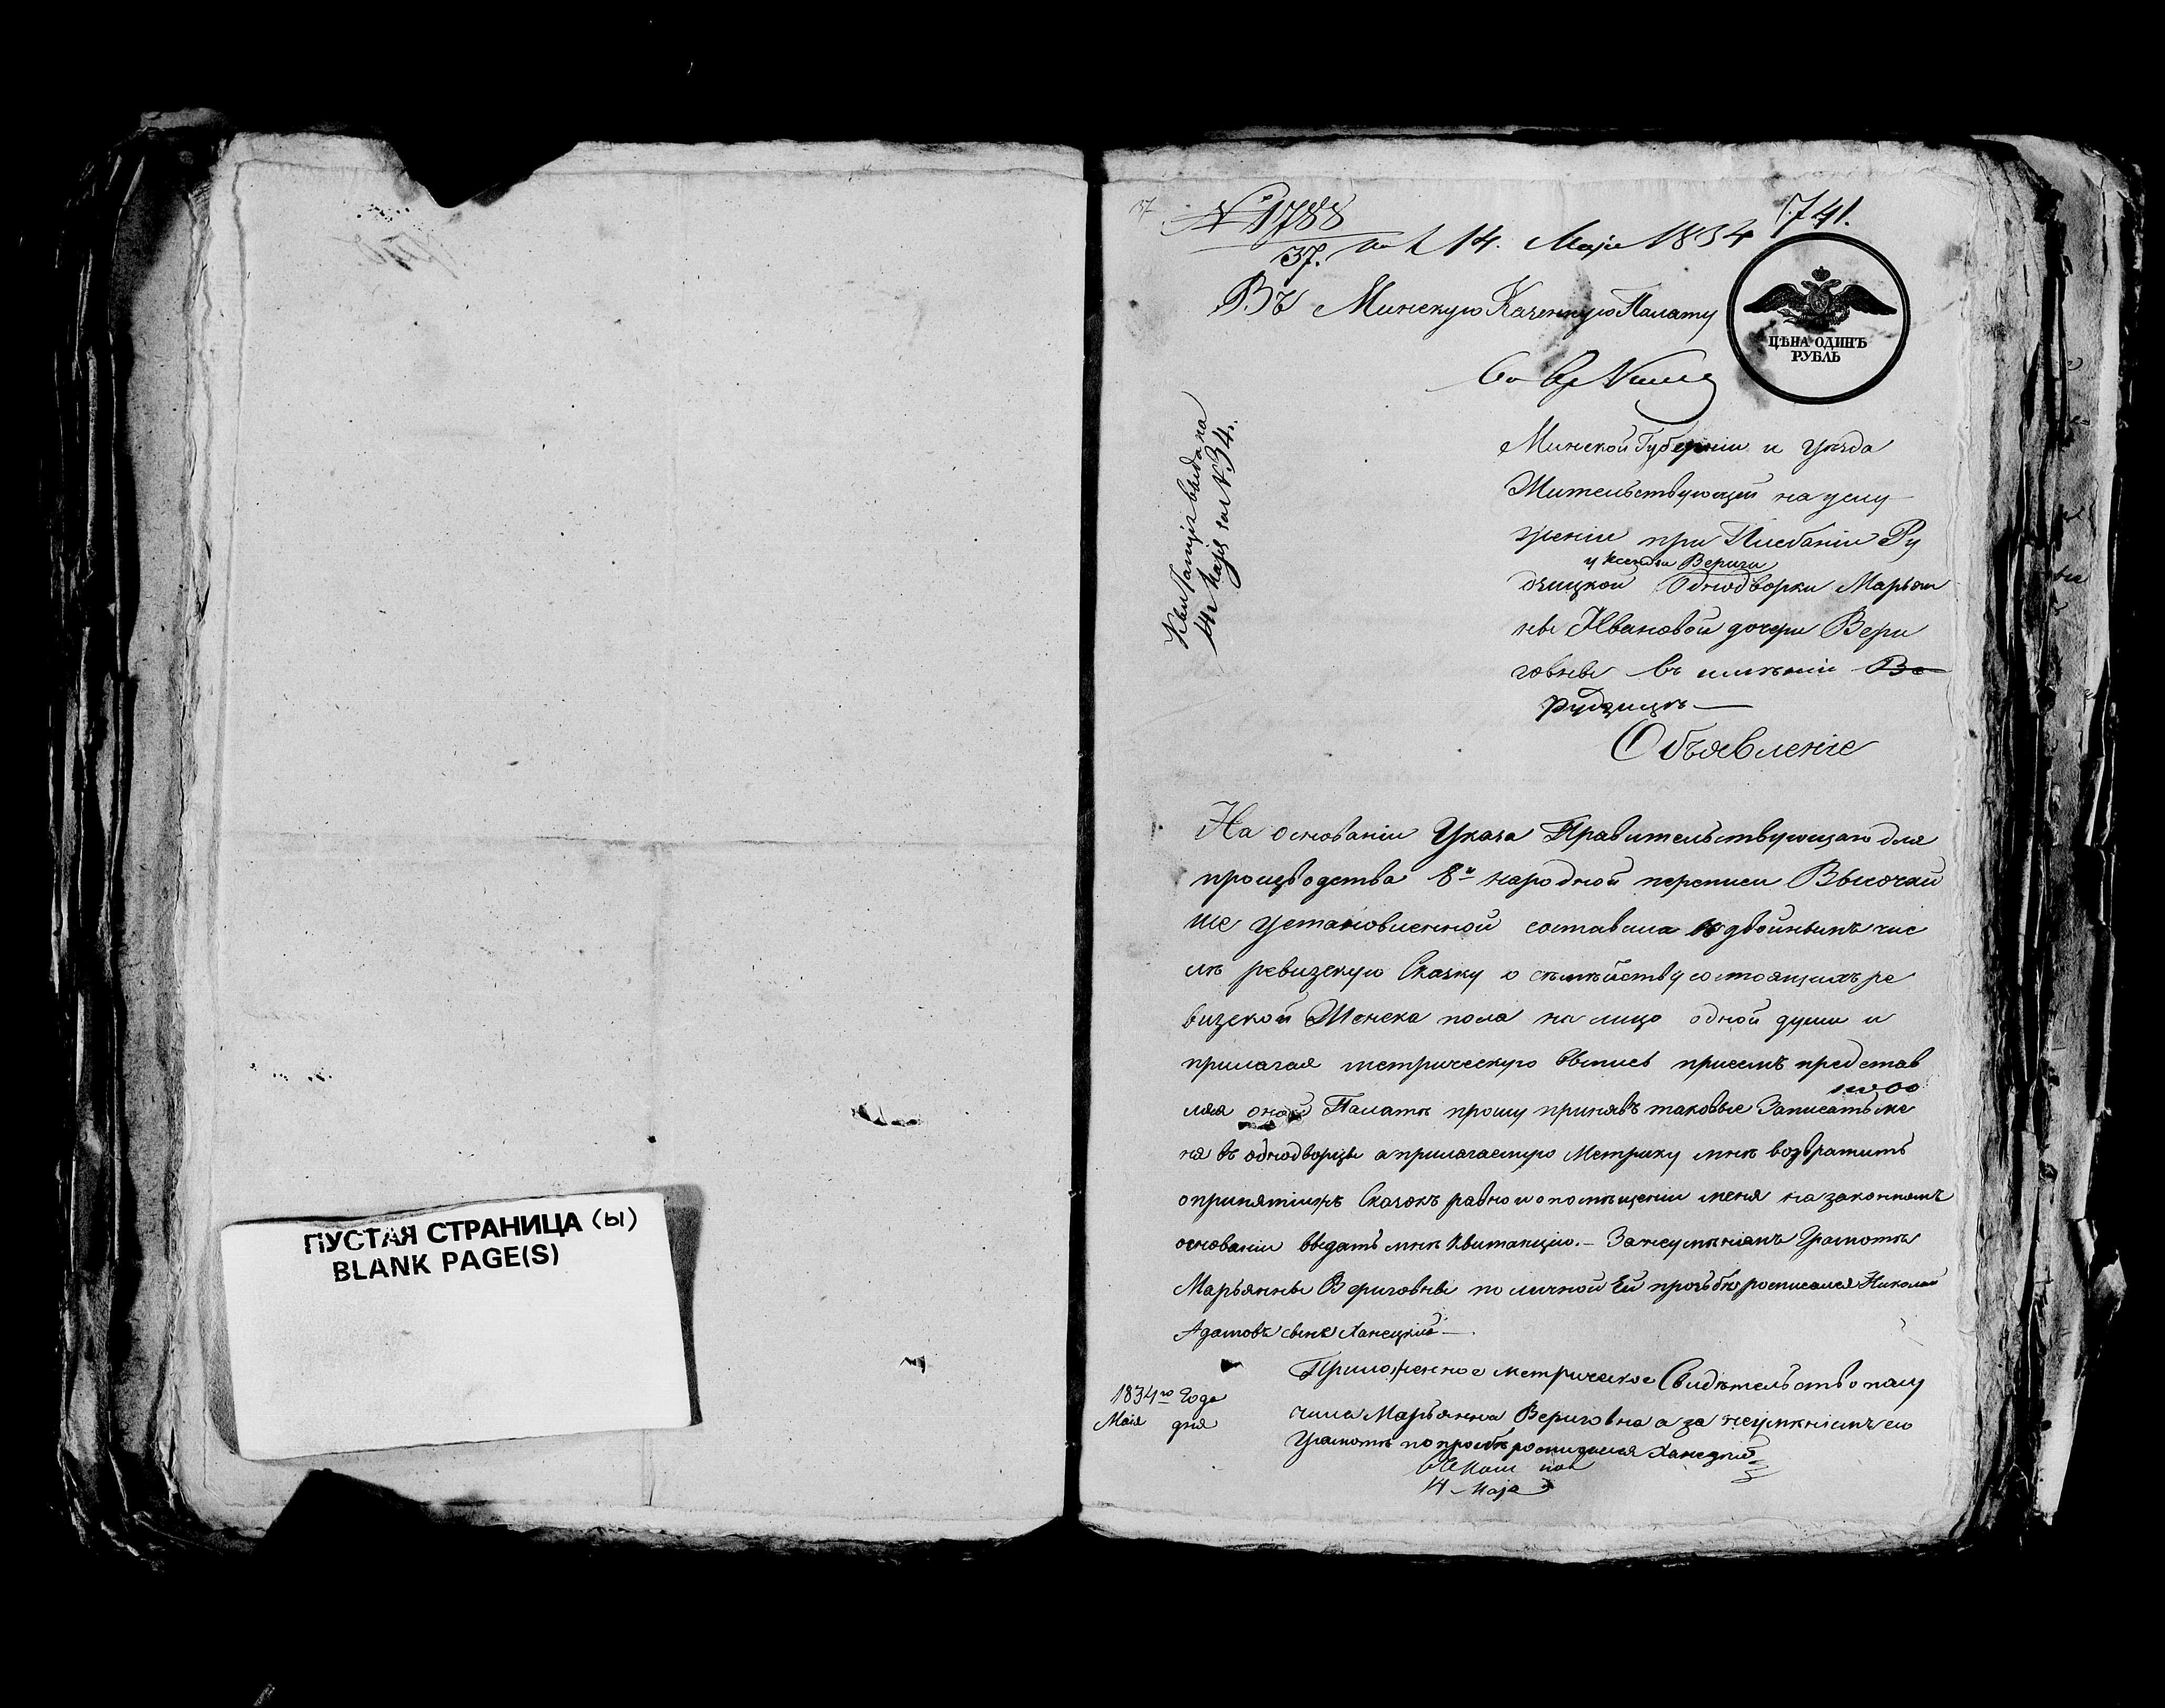 ПУСТАЯ СТРАНИЦА (ы)
BLANK PAGE(S)
37
№ 1788
37. 14. Маја 1834
741.
Въ Минскую Казенную Палату
ЦѢНА ОДИНЪ
РУБЛЬ
Квитанція выдана
14 Маја за №. 34.
Минской Губерніи и уезда
Жительствующей на услу
женіи при Плебаніи Ру
у ксендза Вериги
дзицкой Однодворки Марьян
ны Ивановой дочери Вери
говны въ имѣніи Ве
Рудзицкъ
Объявленіе
На основаніи Указа Правительствующаго для
производства 8й народной переписи Высочай
ше установленной составила въ двойнымъ чис
лѣ ревизскую Сказку о сѣмѣйству состоящихъ ре
визской Женска пола на лицо одной души и
прилагая метрическую выпись присемъ представ
ляя оной Палатѣ прошу принявъ таковые Записать ме
ня въ однодворцы а прилагаемую Метрику мнѣ возвратить
о принятіихъ Сказокъ равно и о помѣщеніи меня на законномъ
основаніи выдать мнѣ Квитанцію. — Занеумѣніемъ Грамотѣ
Марьянны Вериговны по личной Ей прозьбѣ росписался Николай
Адамовъ сынъ Ханецкій —.
Приложенное метрическое Свидѣтельство полу
чила Марьянна Вериговна а за неумѣніемъ ею
Грамотѣ по прозбѣ росписался Ханецкій
1834го Года
Маія дня
14 Маја